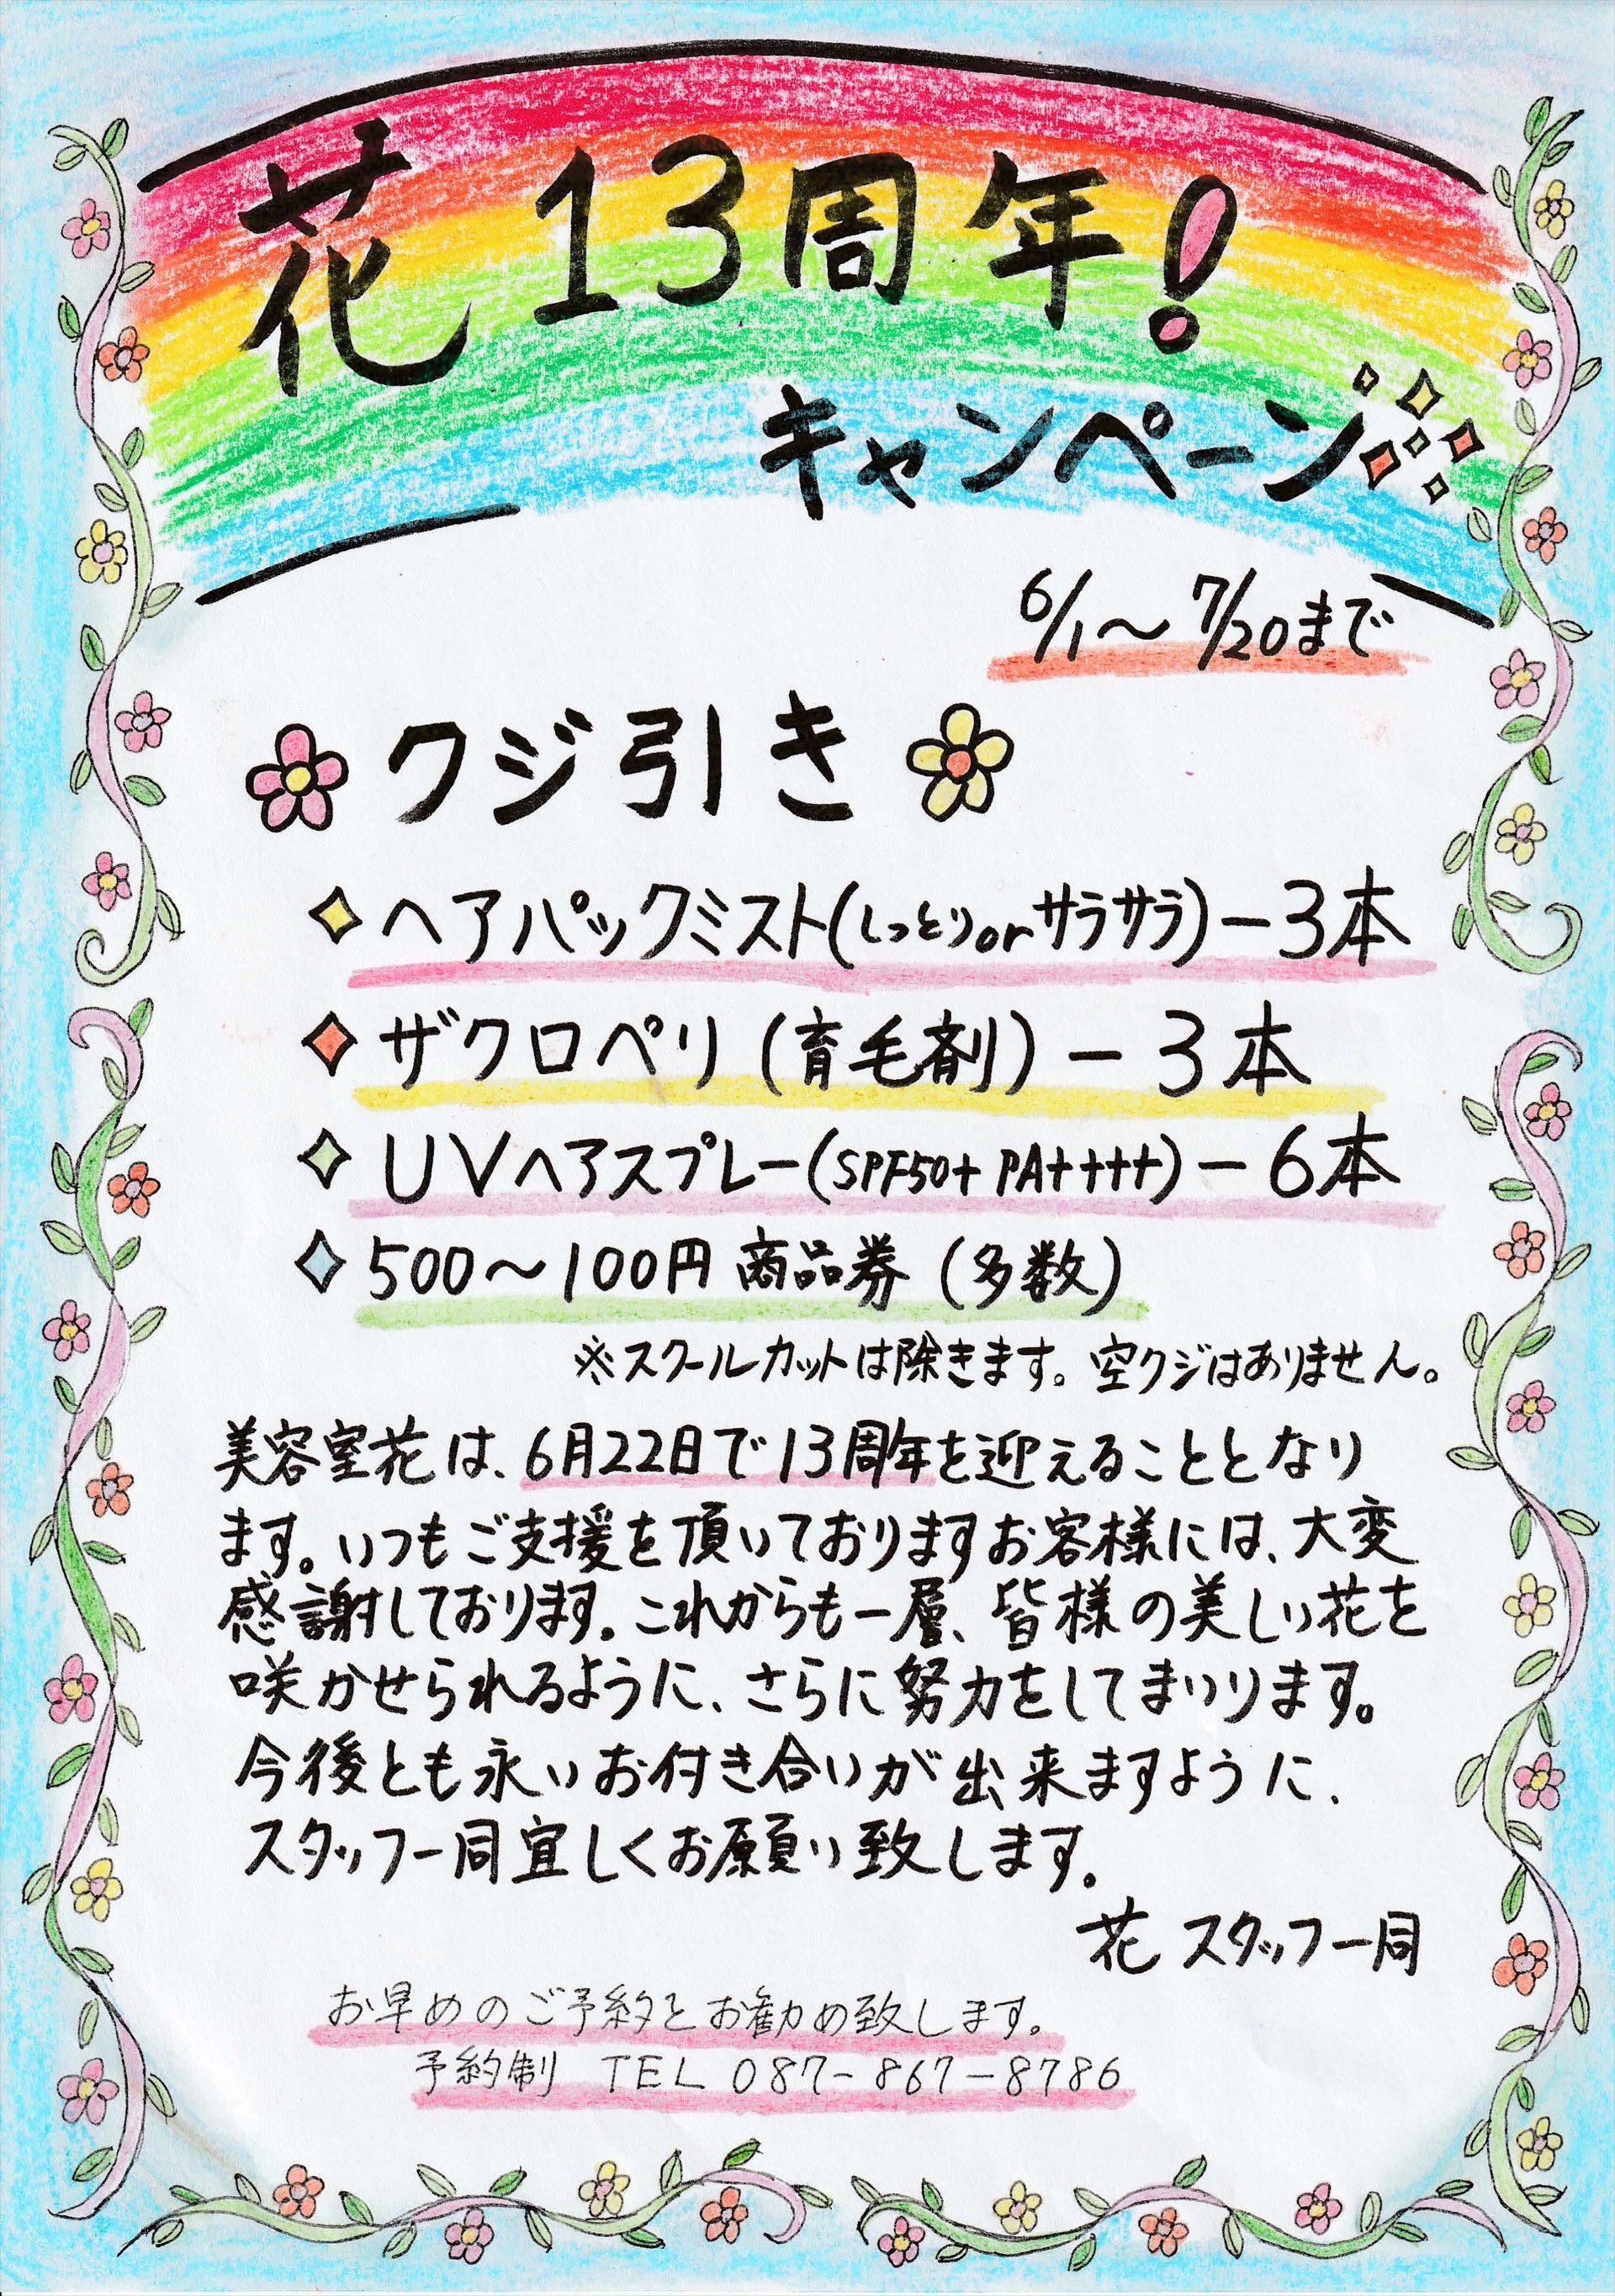 花13周年!
キャンペーン
6/1～7/20まで
クジ引き
ヘアパックミスト(しっとりorサラサラ)ー3本
ザクロペリ(育毛剤)ー3本
UVヘアスプレー(SPF50+ PA++++)ー6本
500～100円商品券(多数)
※スクールカットは除きます。空クジはありません。
美容室花は、6月22日で13周年を迎えることとなり
ます。いつもご支援を頂いておりますお客様には、大変
感謝しております。これからも一層、皆様の美しい花を
咲かせられるように、さらに努力をしてまいります。
今後とも永いお付き合いが出来ますように、
スタッフ一同宜しくお願い致します。
花 スタッフ一同
お早めのご予約をお勧め致します。
予約制 TEL 087-867-8786